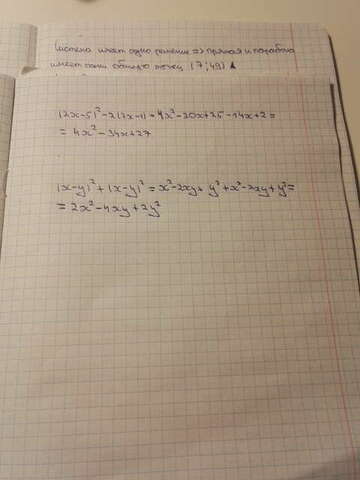 система имеет одно решение => прямая и парабола
имеет одну общую точку (7;49) ▲
(2x-5)²-2(7x-1) = 4x²-20x+25-14x+2=
= 4x²-34x+27
(x-y)²+(x-y)² = x²-2xy+y²+x²-2xy+y²=
= 2x²-4xy+2y²